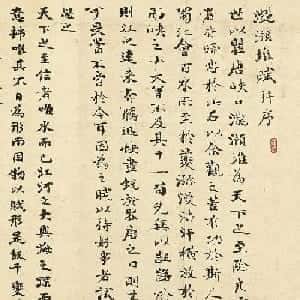 灧澦堆賦并序
世以瞿唐峽口灧澦堆為天下之至險凡
者皆歸咎於此石以余觀之蓋有功於斯人
蜀江會百水而至於夔瀰漫浩汗橫放於
而峽之小大曾不及其十一苟先無以齟齬
則江之遠來奔騰迅快盡銳於瞿唐之口則其
可畏當不啻於今耳因為之賦以待好事者試
思之
天下之至信者唯水而已江河之大與海之深而
意揣唯其不自為形而因物以賦形是故千變